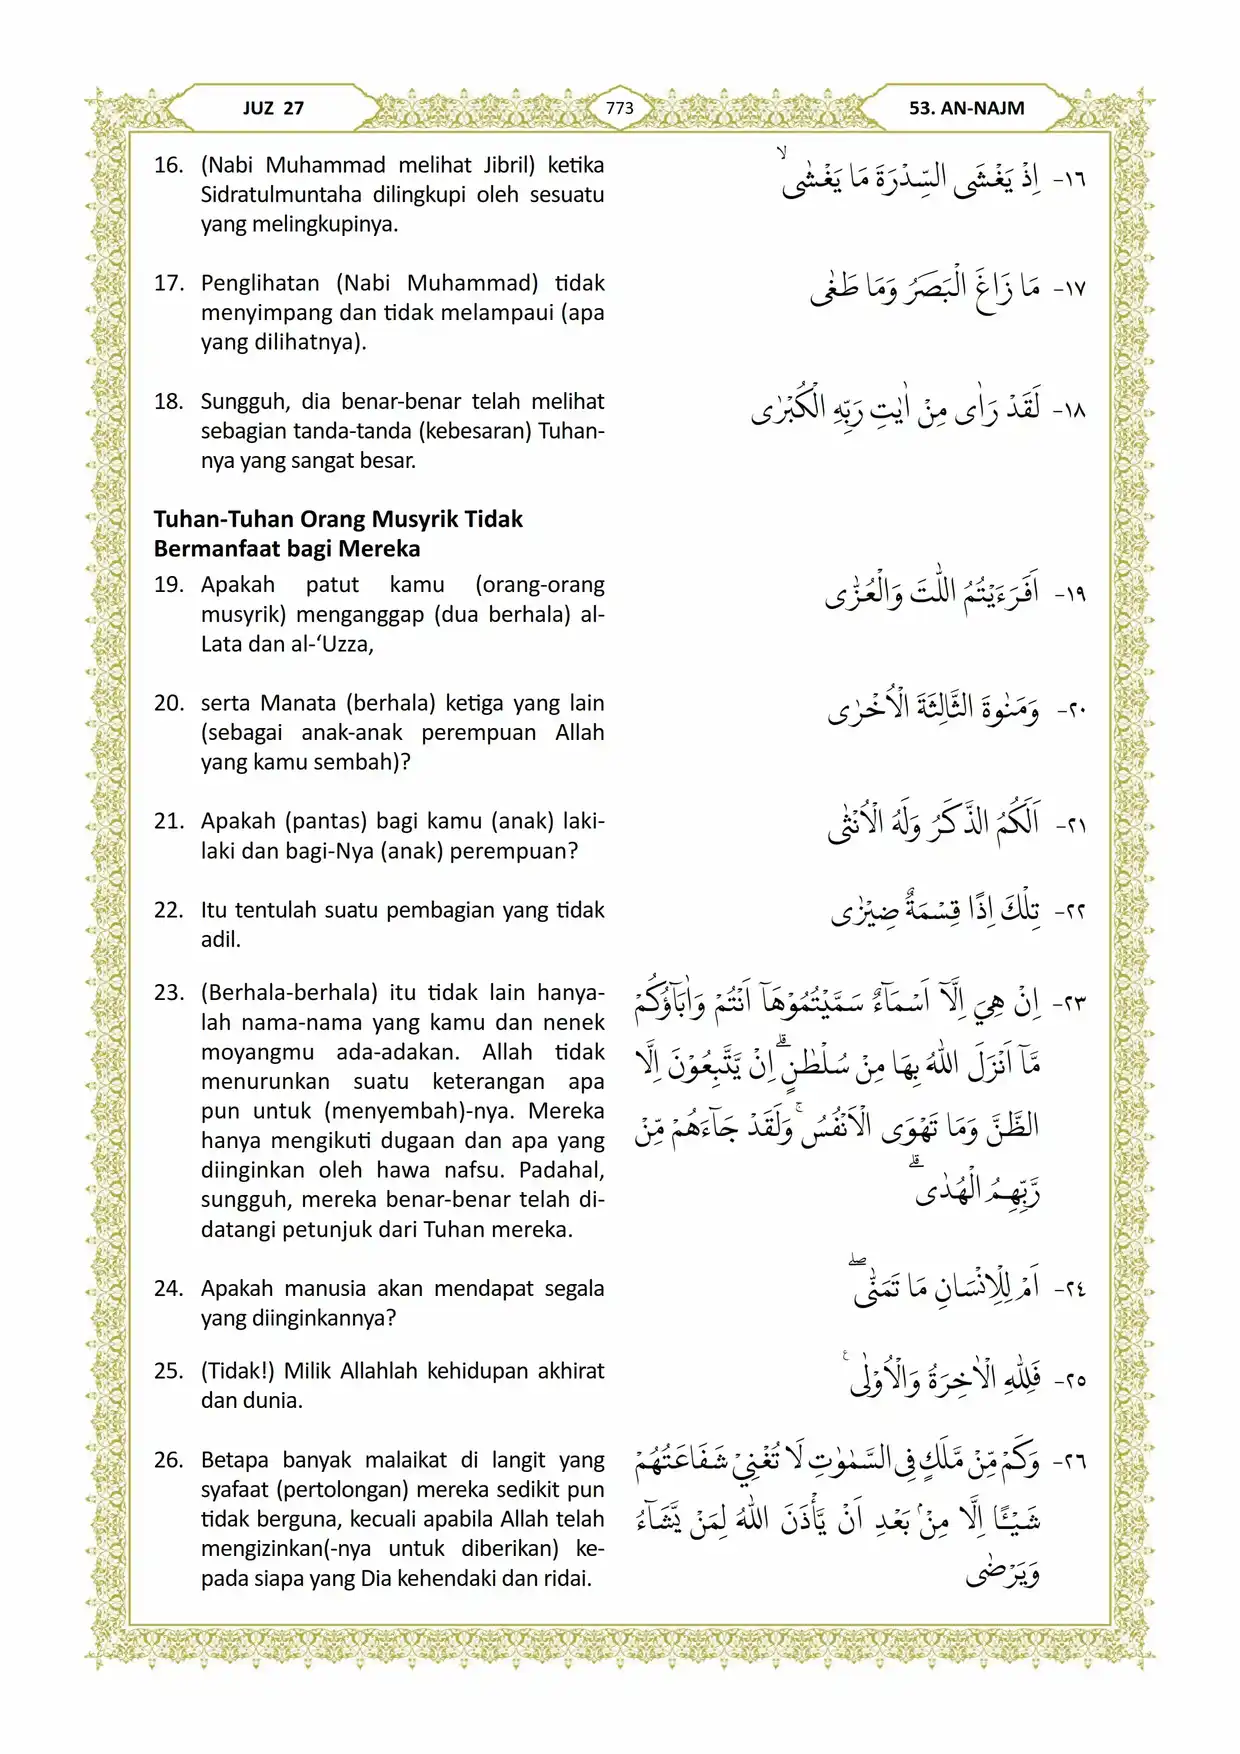 JUZ 27
773
53. AN-NAJM
16. (Nabi Muhammad melihat Jibril) ketika
Sidratulmuntaha dilingkupi oleh sesuatu
yang melingkupinya.
١٦- اِذْ يَغْشَى السِّدْرَةَ مَا يَغْشٰىۙ
17. Penglihatan (Nabi Muhammad) tidak
menyimpang dan tidak melampaui (apa
yang dilihatnya).
١٧- مَا زَاغَ الْبَصَرُ وَمَا طَغٰى
18. Sungguh, dia benar-benar telah melihat
sebagian tanda-tanda (kebesaran) Tuhan-
nya yang sangat besar.
١٨- لَقَدْ رَاٰى مِنْ اٰيٰتِ رَبِّهِ الْكُبْرٰى
Tuhan-Tuhan Orang Musyrik Tidak
Bermanfaat bagi Mereka
19. Apakah patut kamu (orang-orang
musyrik) menganggap (dua berhala) al-
Lata dan al-‘Uzza,
١٩- اَفَرَءَيْتُمُ اللّٰتَ وَالْعُزّٰى
20. serta Manata (berhala) ketiga yang lain
(sebagai anak-anak perempuan Allah
yang kamu sembah)?
٢٠- وَمَنٰوةَ الثَّالِثَةَ الْاُخْرٰى
21. Apakah (pantas) bagi kamu (anak) laki-
laki dan bagi-Nya (anak) perempuan?
٢١- اَلَكُمُ الذَّكَرُ وَلَهُ الْاُنْثٰى
22. Itu tentulah suatu pembagian yang tidak
adil.
٢٢- تِلْكَ اِذًا قِسْمَةٌ ضِيْزٰى
23. (Berhala-berhala) itu tidak lain hanya-
lah nama-nama yang kamu dan nenek
moyangmu ada-adakan. Allah tidak
menurunkan suatu keterangan apa
pun untuk (menyembah)-nya. Mereka
hanya mengikuti dugaan dan apa yang
diinginkan oleh hawa nafsu. Padahal,
sungguh, mereka benar-benar telah di-
datangi petunjuk dari Tuhan mereka.
٢٣- اِنْ هِيَ اِلَّآ اَسْمَاۤءٌ سَمَّيْتُمُوْهَآ اَنْتُمْ وَاٰبَاۤؤُكُمْ
مَّآ اَنْزَلَ اللّٰهُ بِهَا مِنْ سُلْطٰنٍۗ اِنْ يَّتَّبِعُوْنَ اِلَّا
الظَّنَّ وَمَا تَهْوَى الْاَنْفُسُۚ وَلَقَدْ جَاۤءَهُمْ مِّنْ
رَّبِّهِمُ الْهُدٰىۗ
24. Apakah manusia akan mendapat segala
yang diinginkannya?
٢٤- اَمْ لِلْاِنْسَانِ مَا تَمَنّٰىۖ
25. (Tidak!) Milik Allahlah kehidupan akhirat
dan dunia.
٢٥- فَلِلّٰهِ الْاٰخِرَةُ وَالْاُوْلٰىࣖ
26. Betapa banyak malaikat di langit yang
syafaat (pertolongan) mereka sedikit pun
tidak berguna, kecuali apabila Allah telah
mengizinkan(-nya untuk diberikan) ke-
pada siapa yang Dia kehendaki dan ridai.
٢٦- وَكَمْ مِّنْ مَّلَكٍ فِى السَّمٰوٰتِ لَا تُغْنِيْ شَفَاعَتُهُمْ
شَيْـًٔا اِلَّا مِنْۢ بَعْدِ اَنْ يَّأْذَنَ اللّٰهُ لِمَنْ يَّشَاۤءُ
وَيَرْضٰى